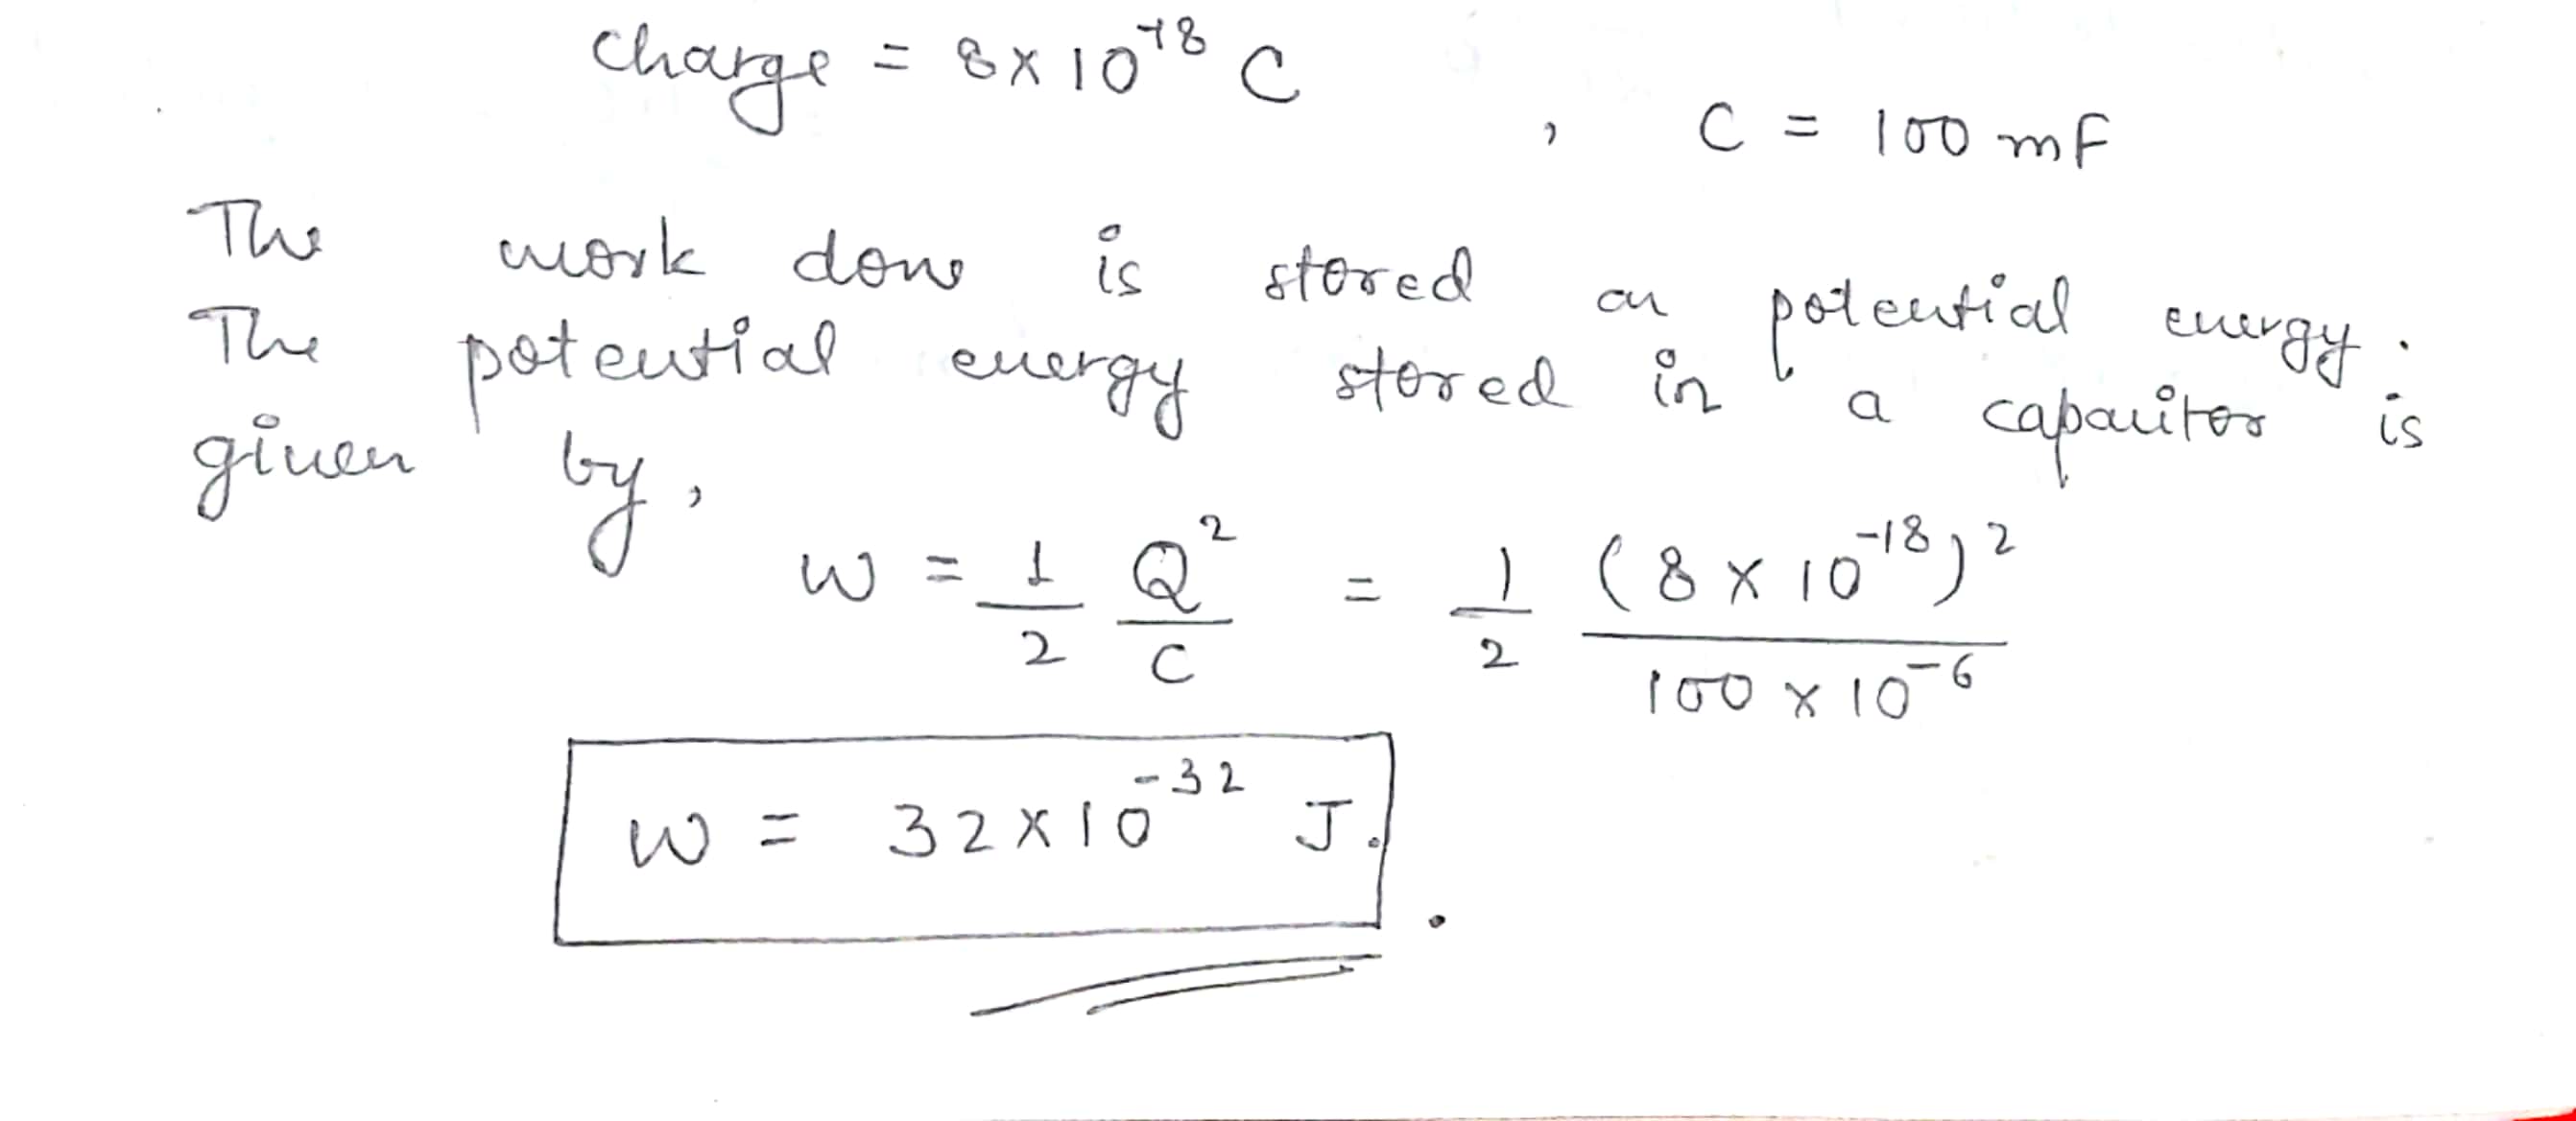 Charge = 8 x 10^-18 C , C = 100 mF
The work done is stored as potential energy.
The potential energy stored in a capacitor is
given by,
W = 1/2 Q^2/C = 1/2 (8 x 10^-18)^2/100 x 10^-6
W = 32 x 10^-32 J.